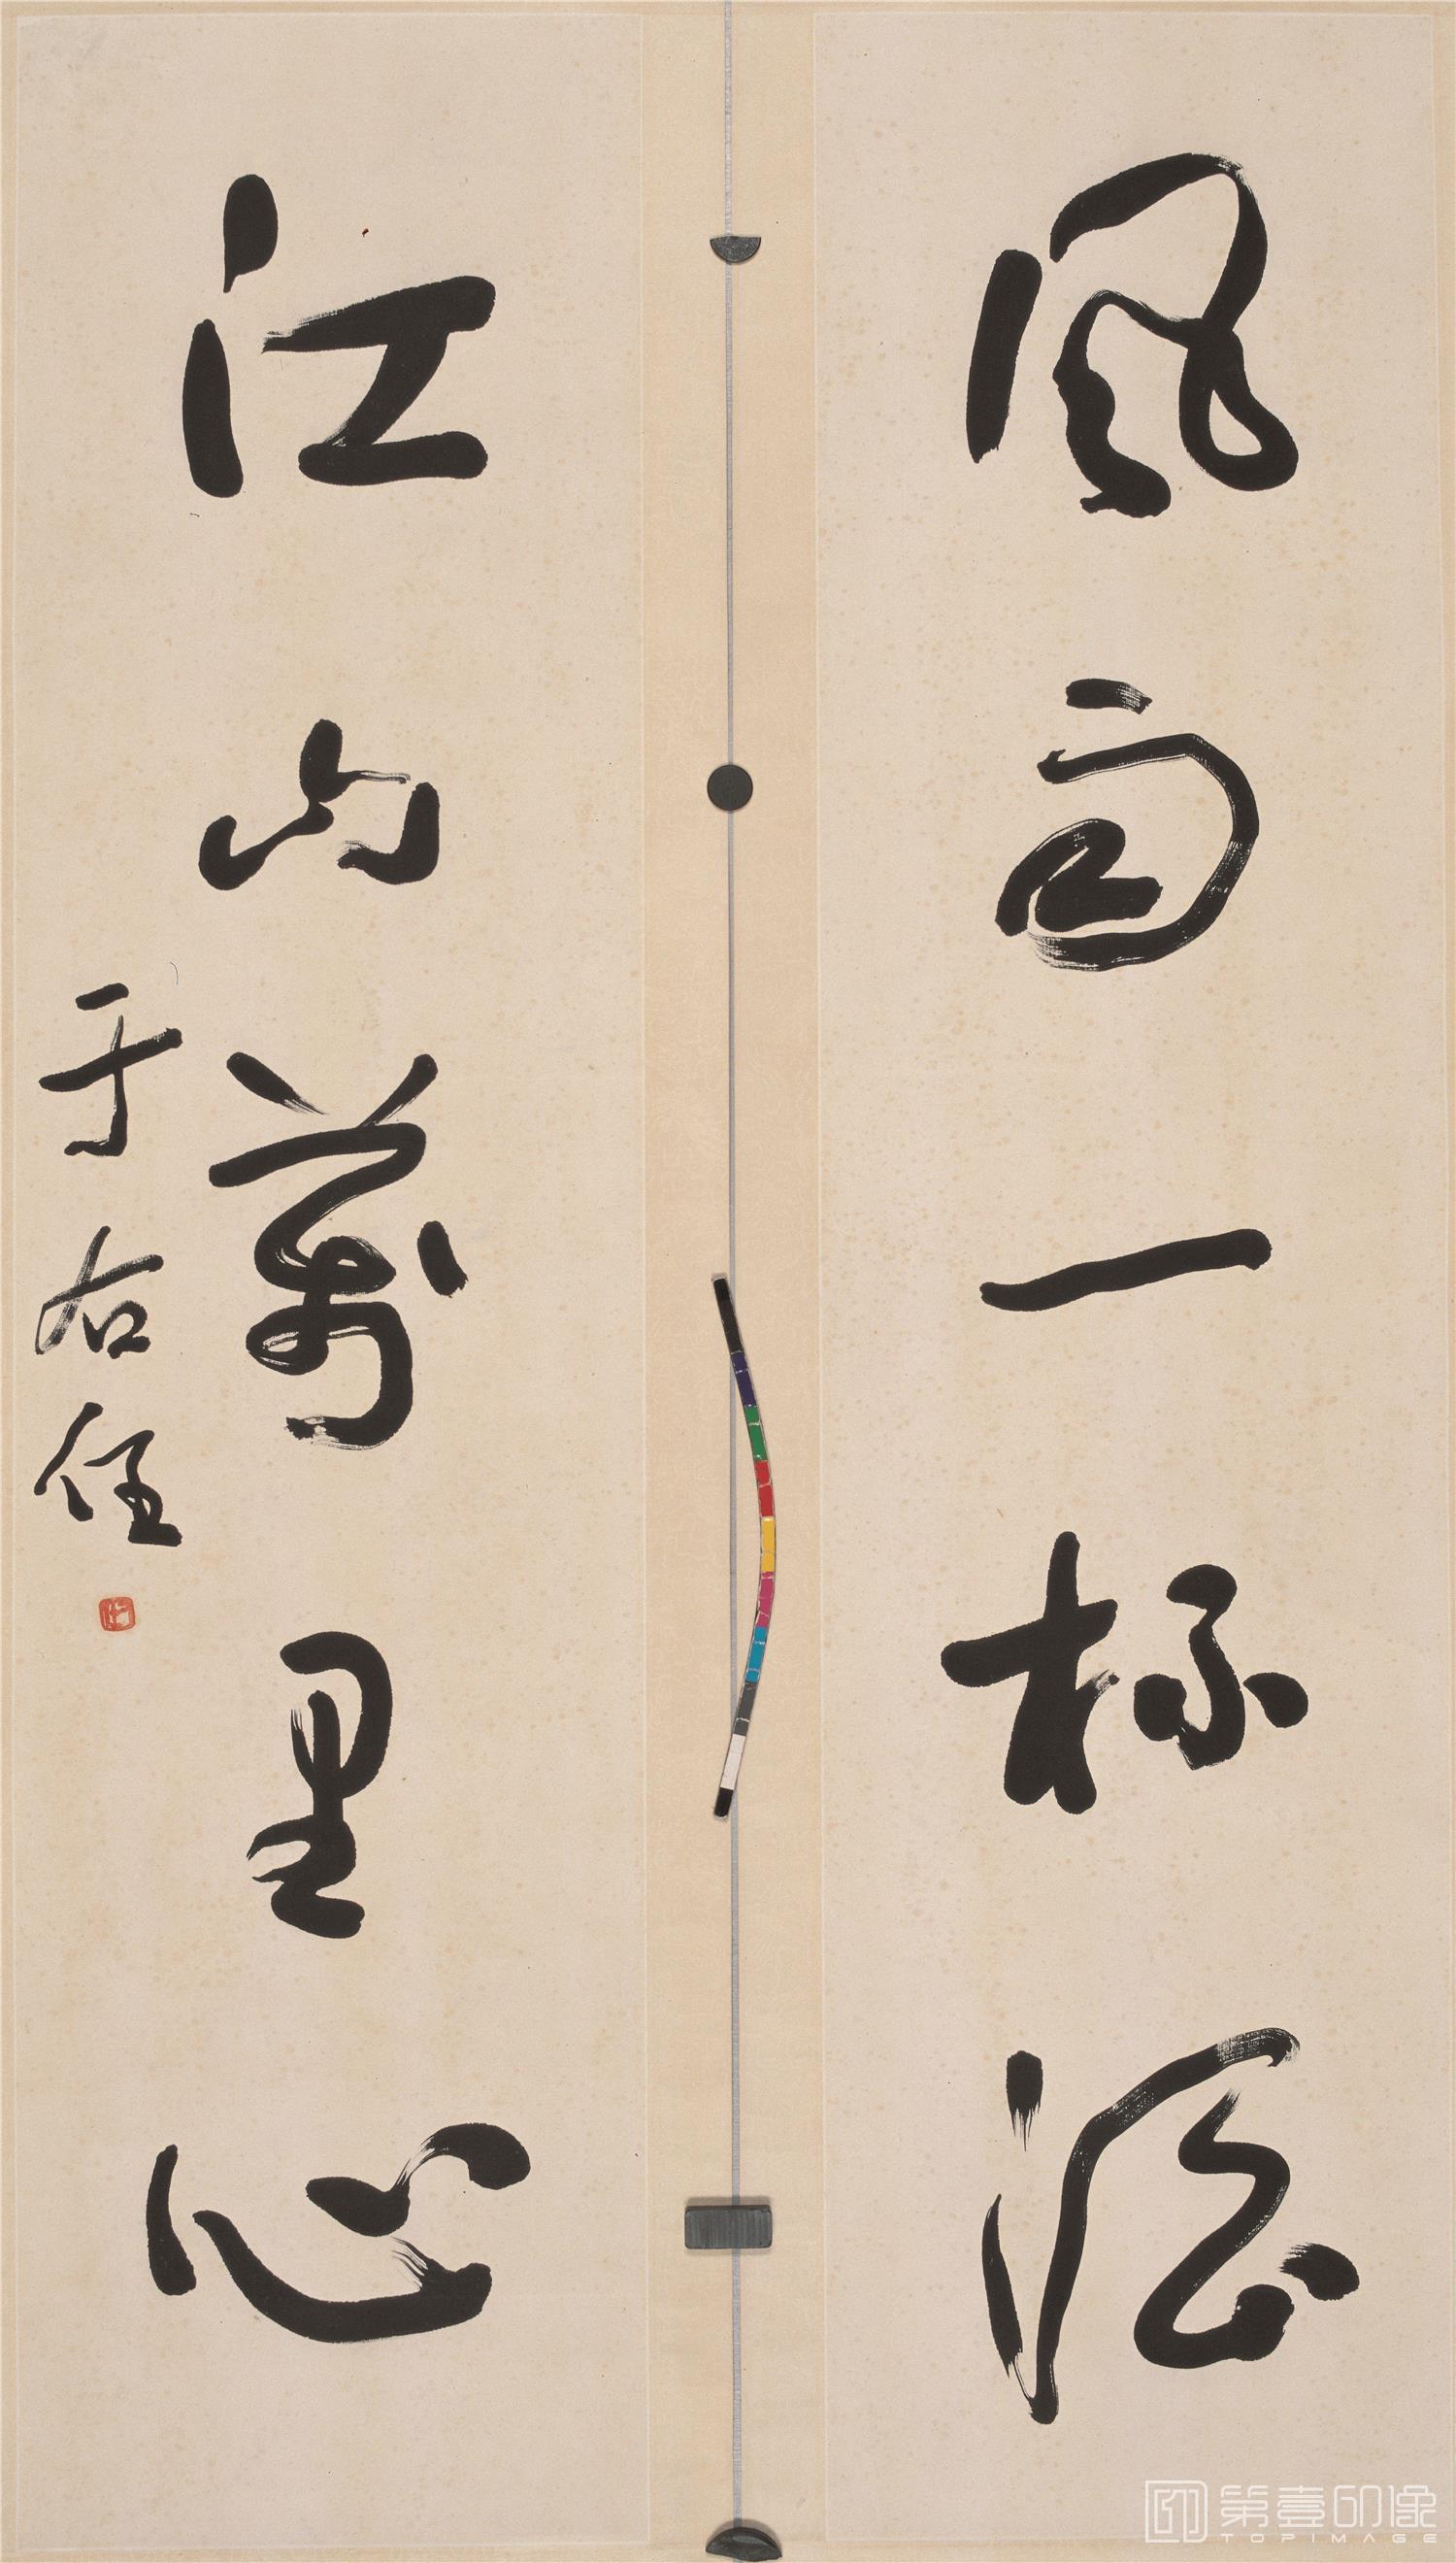 風雨一杯酒
江山萬里心
于右任
第壹印像
TOPIMAGE